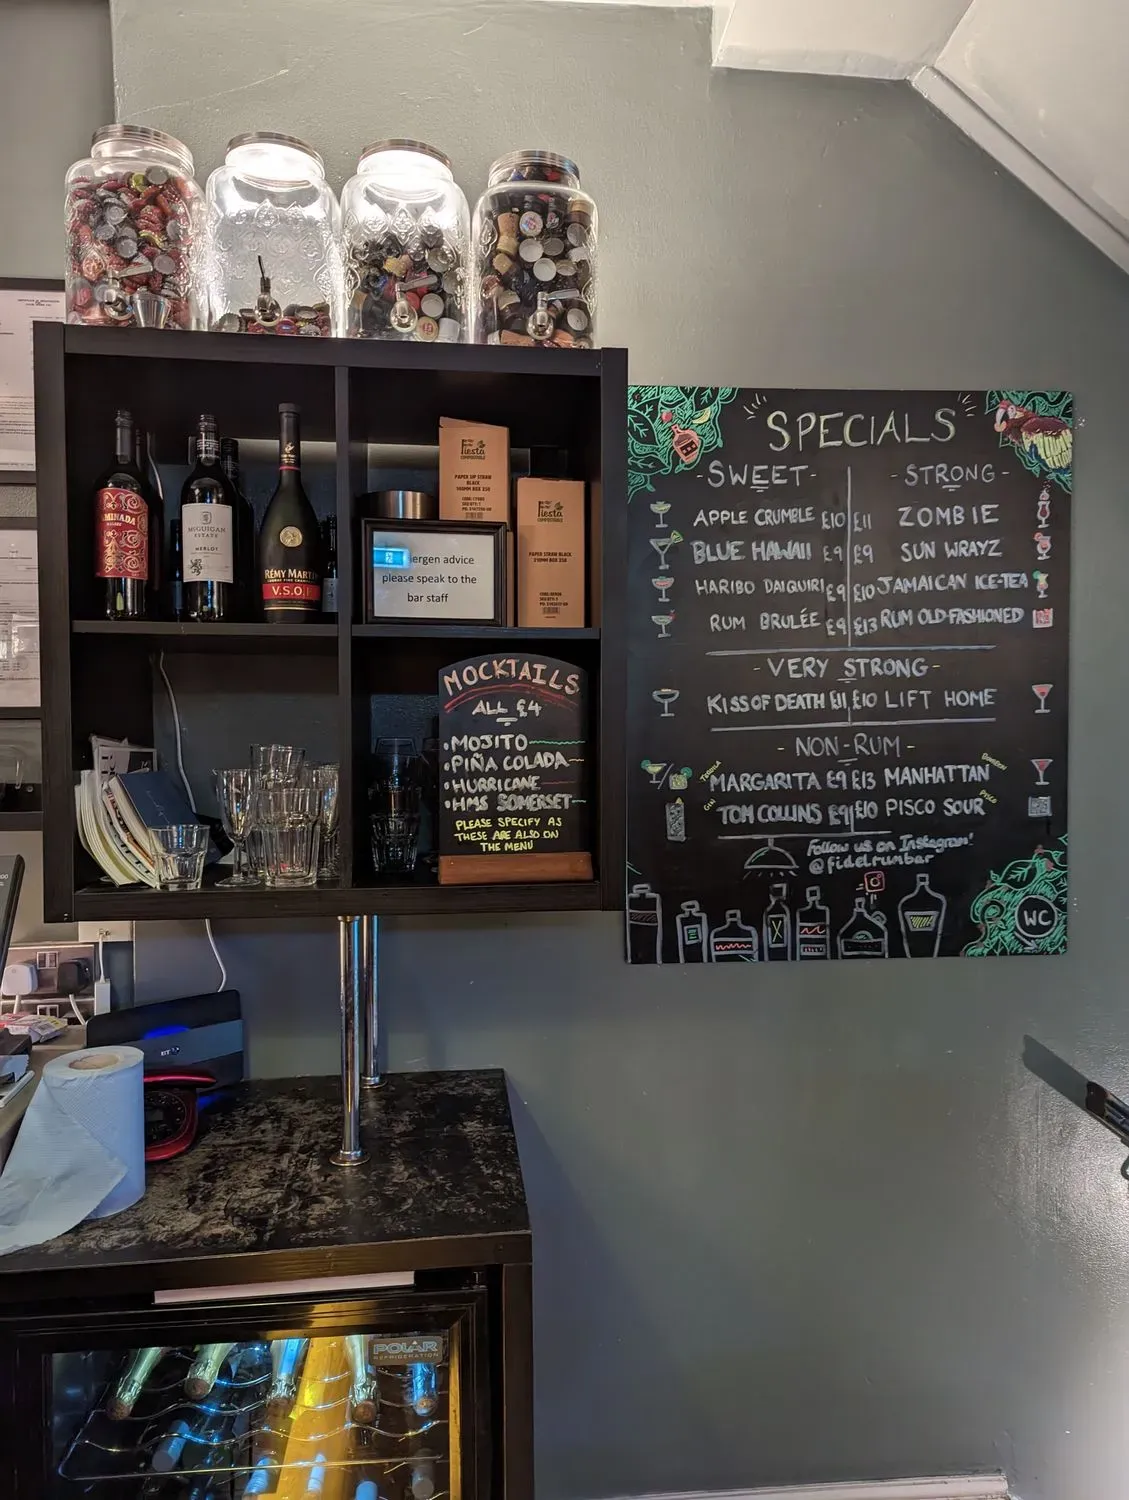 MINADA
McGUIGAN
ESTATE
MERLOT
RÉMY MARTIN
V.S.O.P
Fiesta
COMPOSTABLE
PAPER SIP STRAW
BLACK
Fiesta
COMPOSTABLE
PAPER STRAW BLACK
ergen advice
please speak to the
bar staff
MOCKTAILS
ALL £4
• MOJITO
• PIÑA COLADA
• HURRICANE
• HMS SOMERSET
PLEASE SPECIFY AS
THESE ARE ALSO ON
THE MENU
SPECIALS
- SWEET - - STRONG -
APPLE CRUMBLE £10 £11 ZOMBIE
BLUE HAWAII £9 £9 SUN WRAYZ
HARIBO DAIQUIRI £9 £10 JAMAICAN ICE-TEA
RUM BRULÉE £9 £13 RUM OLD-FASHIONED
- VERY STRONG -
KISS OF DEATH £11 £10 LIFT HOME
- NON-RUM -
TEQUILA MARGARITA £9 £13 MANHATTAN BOURBON
GIN TOM COLLINS £9 £10 PISCO SOUR PISCO
Follow us on Instagram!
@fidelrumbar
WC
BT
POLAR
REFRIGERATION